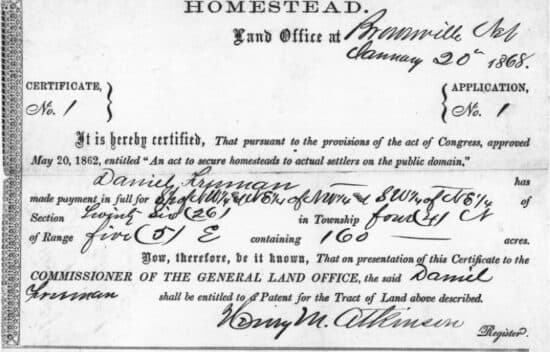 HOMESTEAD.
Land Office at Brownville Neb
January 20th 1868.
CERTIFICATE, No. 1
APPLICATION, No. 1
It is hereby certified, That pursuant to the provisions of the act of Congress, approved
May 20, 1862, entitled "An act to secure homesteads to actual settlers on the public domain,"
Daniel Freeman has
made payment in full for S½ of NW¼ NE¼ of NW¼ SW¼ of NE¼ of
Section twenty six (26) in Township four (4) N
of Range five (5) E containing 160 acres.
Now, therefore, be it known, That on presentation of this Certificate to the
COMMISSIONER OF THE GENERAL LAND OFFICE, the said Daniel
Freeman shall be entitled to a Patent for the Tract of Land above described.
Henry M. Atkinson
Register.